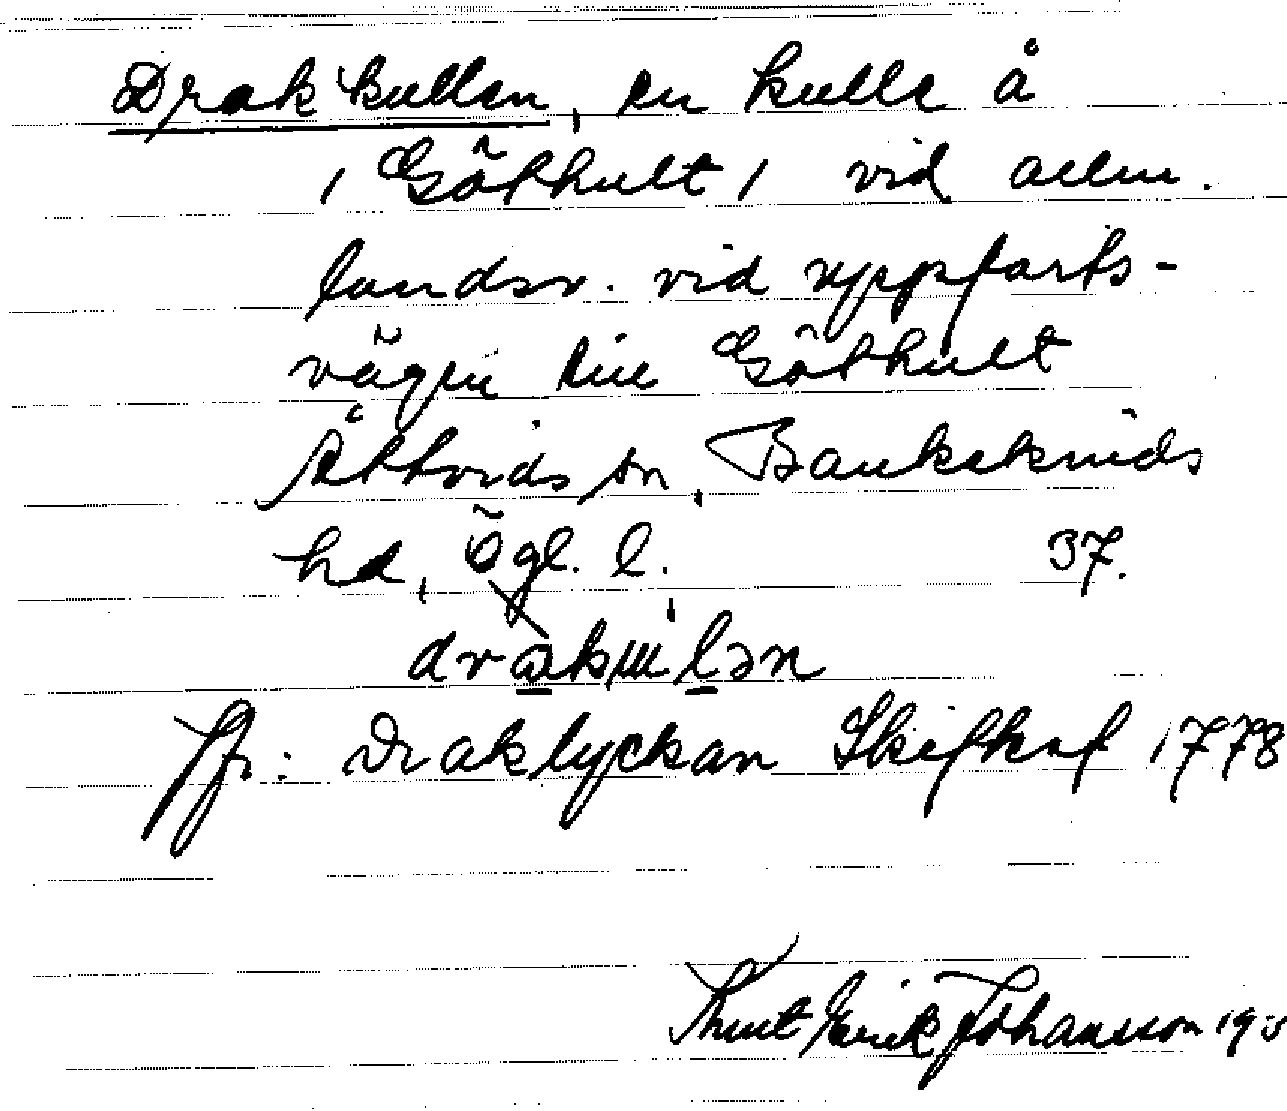 Drakkullen, en kulle å
/ Göthult / vid allm.
landsv. vid uppfarts-
vägen till Göthult
Åtvids sn, Bankekinds
hd, Ögl. l. 37.
Jfr: Draklyckan Skifteaf 1778
Knut Erik Johansson